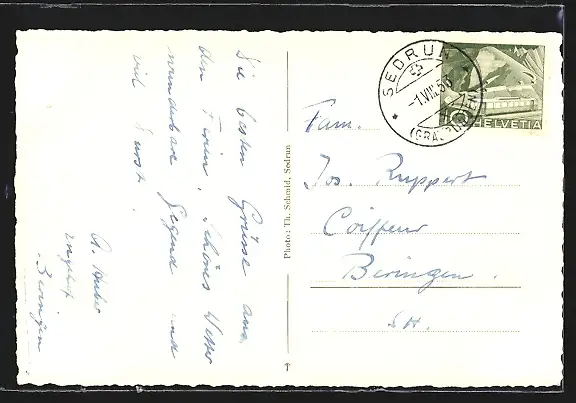 Die besten Grüsse aus
den Ferien. Schönes Wetter
wunderbare Gegend und
viel Durst.
A. Huber
Beringen
Photo: Th. Schmid, Sedrun
SEDRUN
-1.VIII.50
(GRAUBÜNDEN)
HELVETIA
Fam.
Jos. Ruppert
Coiffeur
Beringen.
SH.